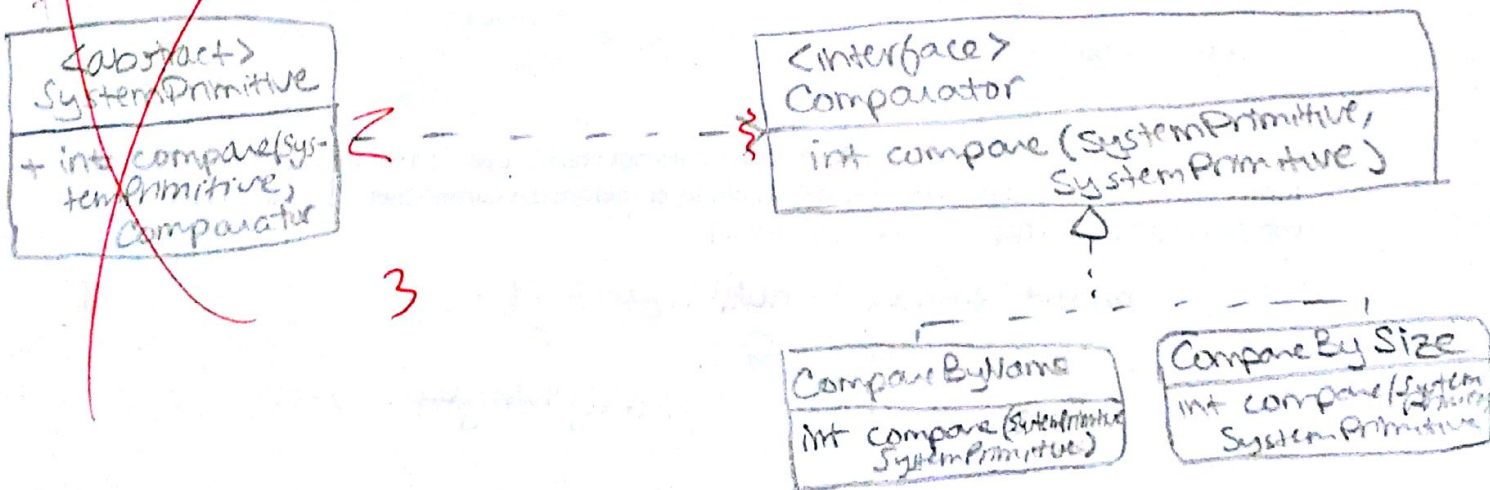 <abstract>
SystemPrimitive
+ int compare(Sys-
temPrimitive,
Comparator
3
<interface>
Comparator
int compare (SystemPrimitive,
SystemPrimitive)
CompareByName
int compare (SystemPrimitive
SystemPrimitive)
CompareBySize
int compare (System
SystemPrimitive